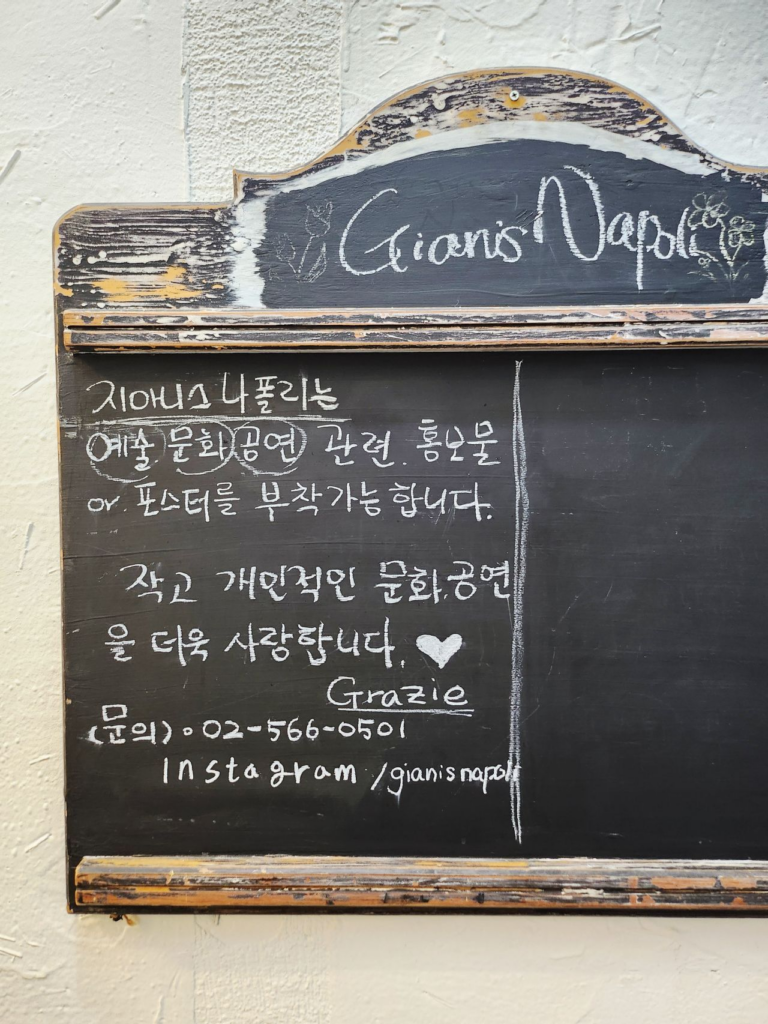 Gianis Napoli
지아니스 나폴리는
예술.문화.공연 관련. 홍보물
or 포스터를 부착가능합니다.
작고 개인적인 문화.공연
을 더욱 사랑합니다. ♥
Grazie
(문의)。02-566-0501
Instagram /gianisnapoli